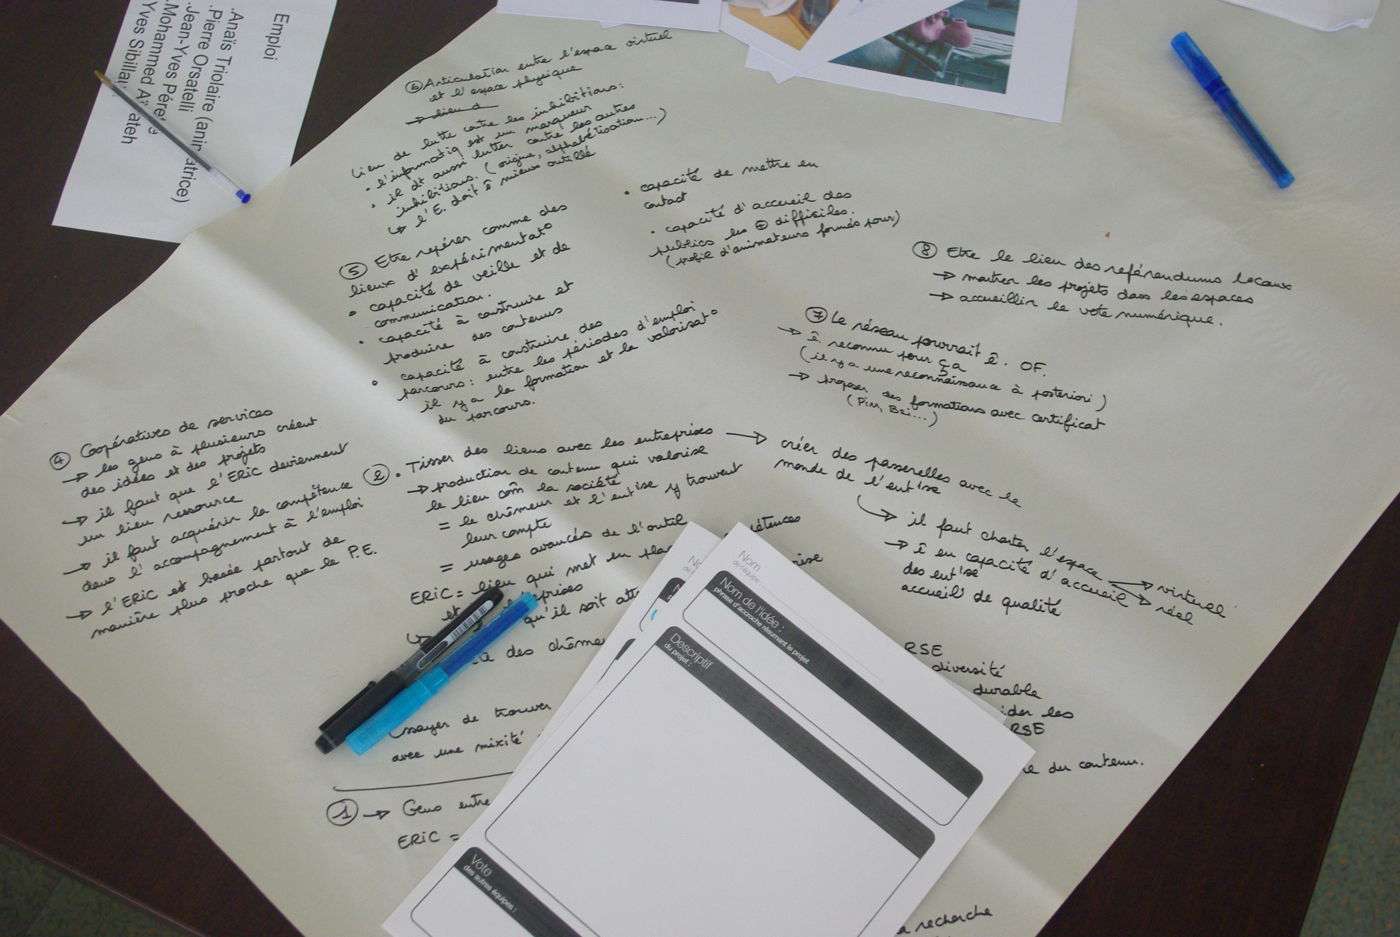 Emploi
.Anaïs Triolaire (anim atrice)
.Pierre Orsatelli
.Jean-Yves Pérez
.Mohammed A
Yves Sibillat ateh
⑥ Articulation entre l'espace virtuel
et l'espace physique
Lieu de lutte contre les inhibitions:
• l'informatiq est un marqueur
• il dt aussi lutter contre les autres
inhibitions. (origine, alphabétisation...)
↳ l'E. doit ê mieux outillé
• capacité de mettre en
contact
• capacité d'accueil des
publics les ⊕ difficiles.
(profil d'animateurs formés pour)
⑤ Etre repérer comme des
lieux d'expérimentat°
• capacité de veille et de
communication.
• capacité à construire et
produire des contenus
• capacité à construire des
parcours: entre les périodes d'emploi
il y a la formation et la valorisat°
du parcours.
⑧ Etre le lieu des référendums locaux
→ montrer les projets dans les espaces
→ accueillir le vote numérique.
⑦ Le réseau pourrait ê. OF.
→ ê reconnu pour ça
(il y a une reconnaissance à posteriori)
→ proposer des formations avec certificat
(Pim, B2i...)
④ Coopératives de services
→ les gens à plusieurs créent
des idées et des projets
→ il faut que l'ERIC deviennent
un lieu ressource
→ il faut acquérir la compétence
dans l'accompagnement à l'emploi
→ l'ERIC est basée partout de
manière plus proche que le P.E.
② • Tisser des liens avec les entreprises →
→ production de contenu qui valorise
le lien com la société
= le chômeur et l'ent'ise y trouvent
leur compte
= usages avancés de l'outil étences
ERIC = lieu qui met en pla rise
et prises
↳ qu'il soit att
té des chôme
ssayer de trouver
avec une mixité
créer des passerelles avec le
monde de l'ent'ise
→ il faut charter l'espace
→ ê en capacité d'accueil → virtuel
→ réel
des ent'ise
accueil de qualité
RSE
diversité
durable
ider les
RSE
re du contenu.
① → Gens entre
ERIC =
a recherche
Nom
de l'équipe :
Nom de l'idée :
phrase d'accroche résumant le projet
Descriptif
du projet :
Vote
des autres équipes :